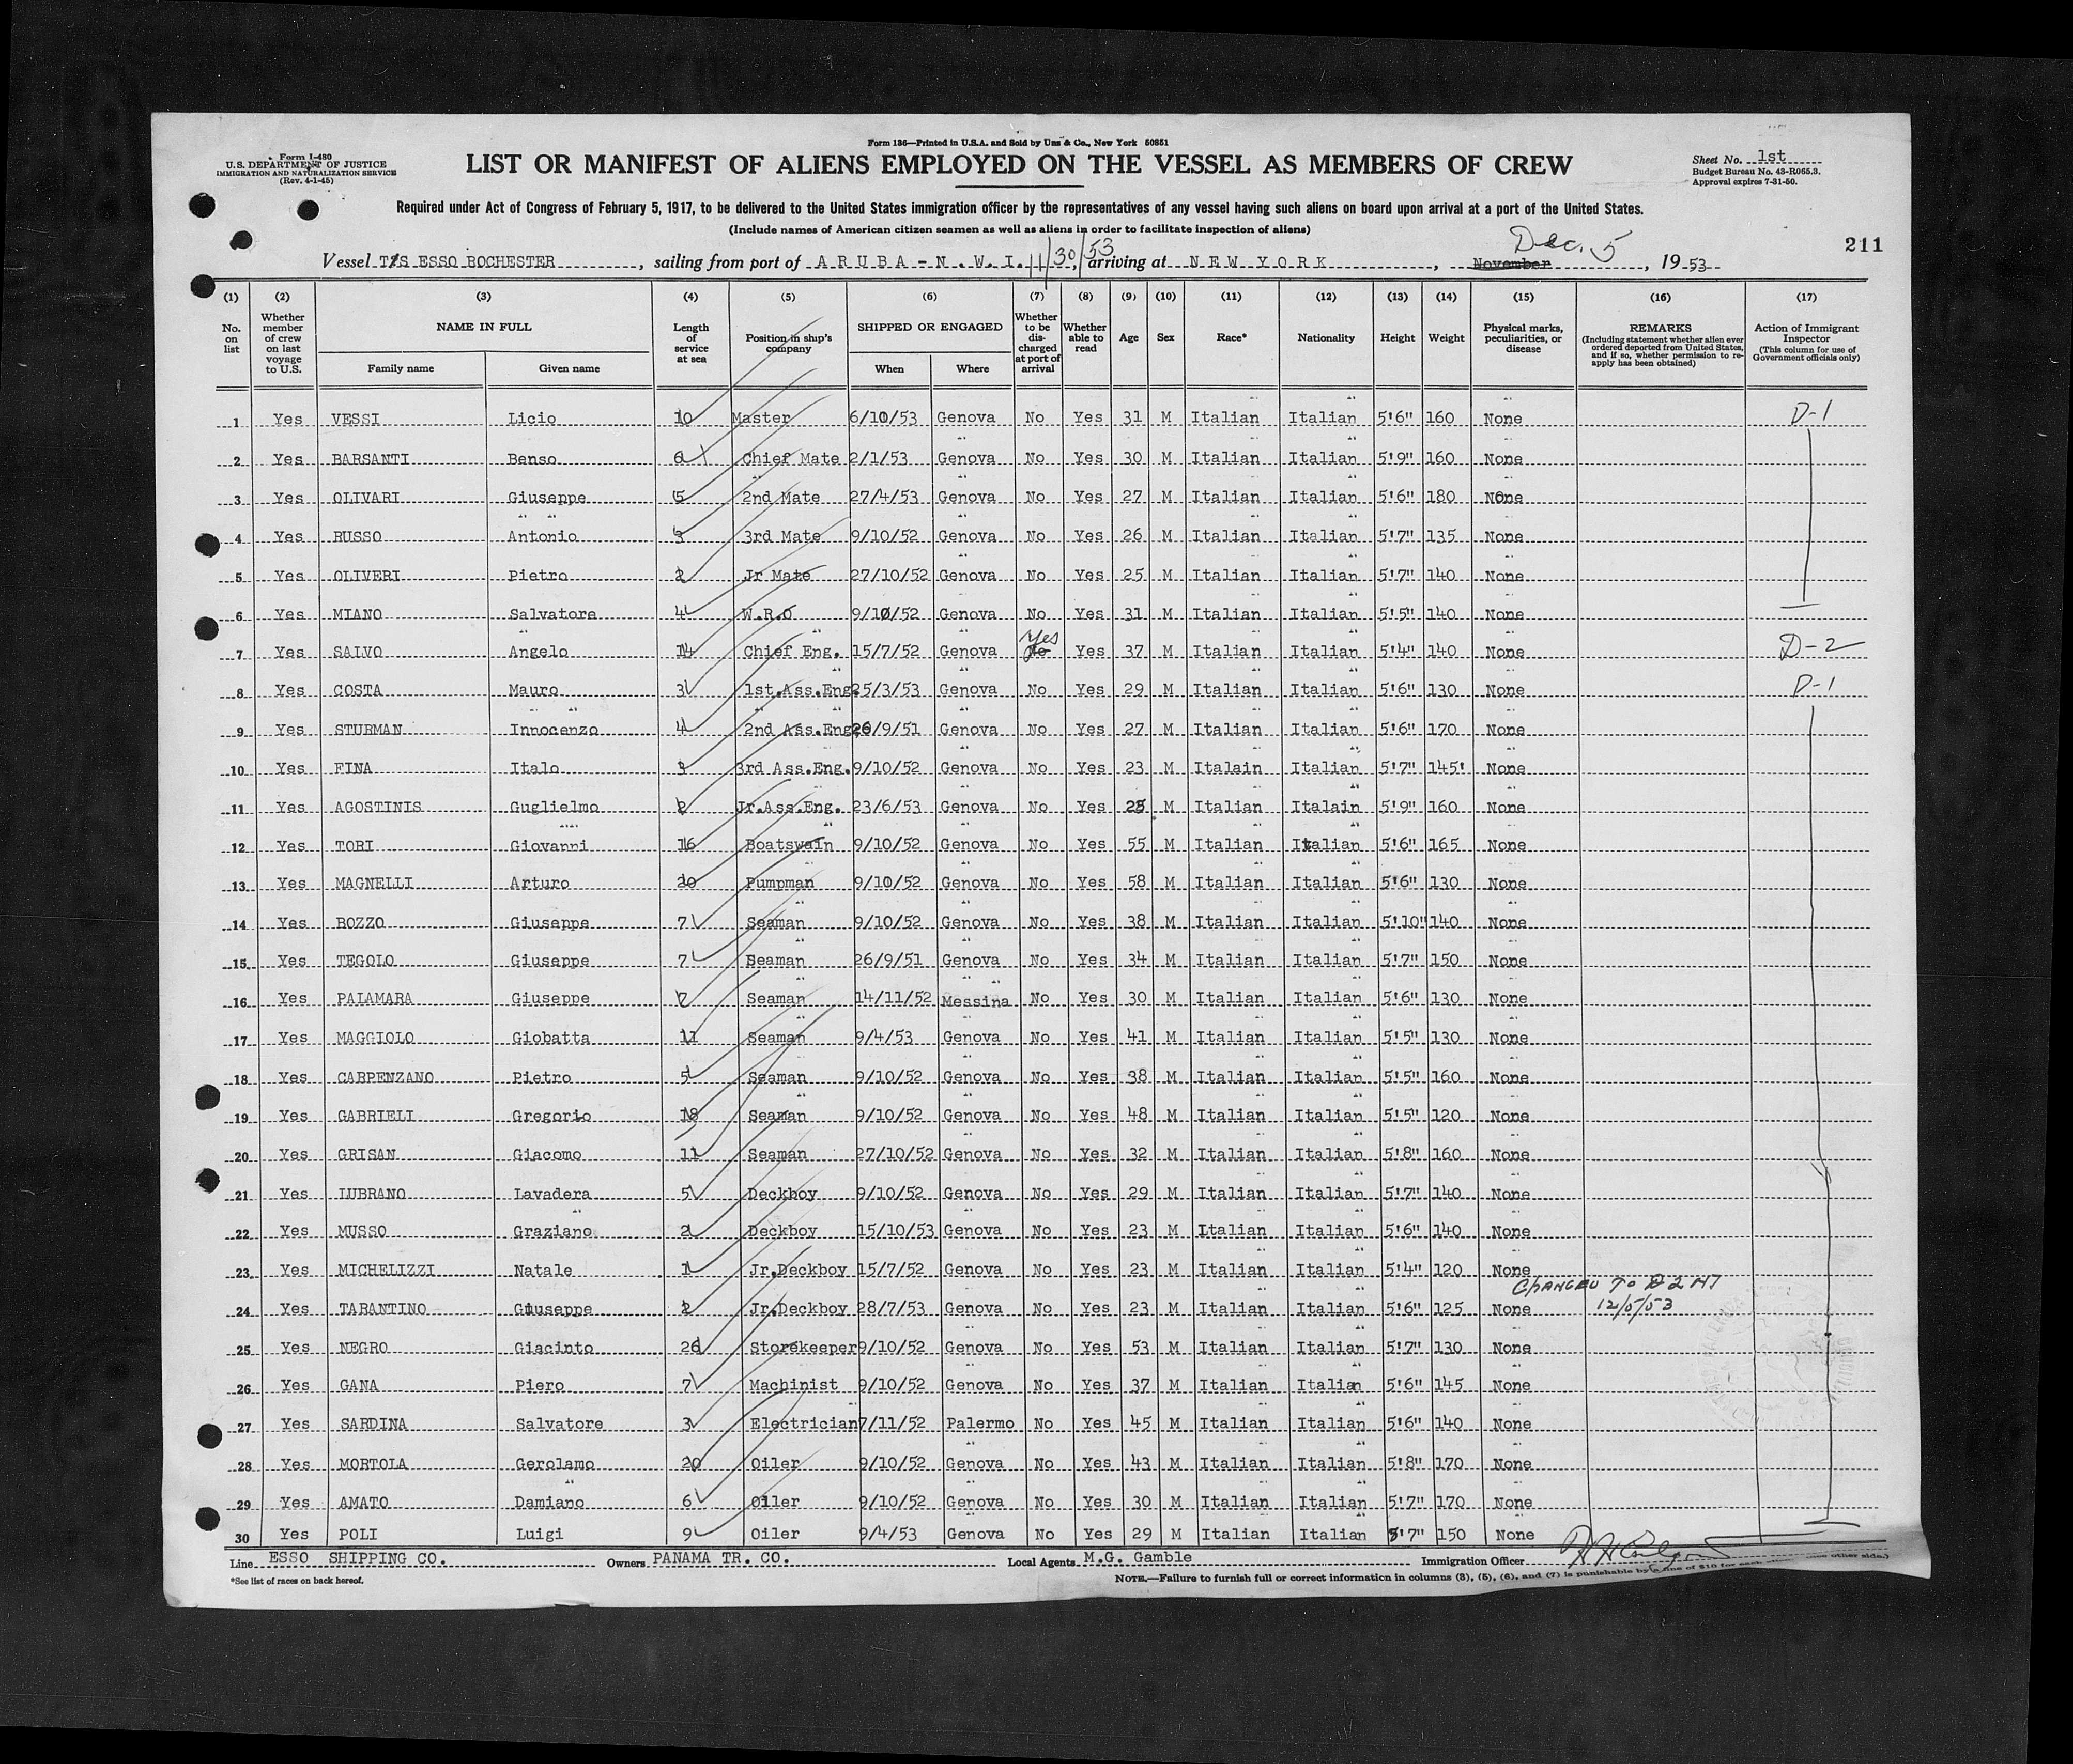 Form 136—Printed in U.S.A. and Sold by Unz & Co., New York 50851
Form I-480
U.S. DEPARTMENT OF JUSTICE
IMMIGRATION AND NATURALIZATION SERVICE
(Rev. 4-1-45)
LIST OR MANIFEST OF ALIENS EMPLOYED ON THE VESSEL AS MEMBERS OF CREW
Sheet No. 1st
Budget Bureau No. 43-R065.3.
Approval expires 7-31-50.
Required under Act of Congress of February 5, 1917, to be delivered to the United States immigration officer by the representatives of any vessel having such aliens on board upon arrival at a port of the United States.
(Include names of American citizen seamen as well as aliens in order to facilitate inspection of aliens)
211
Vessel T/S ESSO ROCHESTER, sailing from port of ARUBA-N.W.I. 11/30/53, arriving at NEW YORK, November Dec. 5, 1953
(1) (2) (3) (4) (5) (6) (7) (8) (9) (10) (11) (12) (13) (14) (15) (16) (17)
No. on list Whether member of crew on last voyage to U.S. NAME IN FULL Family name Given name Length of service at sea Position in ship's company SHIPPED OR ENGAGED When Where Whether to be discharged at port of arrival Whether able to read Age Sex Race* Nationality Height Weight Physical marks, peculiarities, or disease REMARKS (Including statement whether alien ever ordered deported from United States, and if so, whether permission to reapply has been obtained) Action of Immigrant Inspector (This column for use of Government officials only)
1 Yes VESSI Licio 10 Master 6/10/53 Genova No Yes 31 M Italian Italian 5'6" 160 None D-1
2 Yes BARSANTI Benso Chief Mate 2/1/53 Genova No Yes 30 M Italian Italian 5'9" 160 None
3 Yes OLIVARI Giuseppe 5 2nd Mate 27/4/53 Genova No Yes 27 M Italian Italian 5'6" 180 None
4 Yes RUSSO Antonio 3 3rd Mate 9/10/52 Genova No Yes 26 M Italian Italian 5'7" 135 None
5 Yes OLIVERI Pietro 2 Jr Mate 27/10/52 Genova No Yes 25 M Italian Italian 5'7" 140 None
6 Yes MIANO Salvatore 4 W.R.O 9/10/52 Genova No Yes 31 M Italian Italian 5'5" 140 None
7 Yes SALVO Angelo 14 Chief Eng. 15/7/52 Genova No Yes Yes 37 M Italian Italian 5'4" 140 None D-2
8 Yes COSTA Mauro 3 1st.Ass.Eng. 25/3/53 Genova No Yes 29 M Italian Italian 5'6" 130 None D-1
9 Yes STURMAN Innocenzo 4 2nd Ass.Eng. 26/9/51 Genova No Yes 27 M Italian Italian 5'6" 170 None
10 Yes FINA Italo 3 3rd Ass.Eng. 9/10/52 Genova No Yes 23 M Italain Italian 5'7" 145' None
11 Yes AGOSTINIS Guglielmo 2 Jr.Ass.Eng. 23/6/53 Genova No Yes M Italian Italain 5'9" 160 None
12 Yes TORI Giovanni 16 Boatswain 9/10/52 Genova No Yes 55 M Italian Italian 5'6" 165 None
13 Yes MAGNELLI Arturo 20 Pumpman 9/10/52 Genova No Yes 58 M Italian Italian 5'6" 130 None
14 Yes BOZZO Giuseppe 7 Seaman 9/10/52 Genova No Yes 38 M Italian Italian 5'10" 140 None
15 Yes TEGOLO Giuseppe 7 Seaman 26/9/51 Genova No Yes 34 M Italian Italian 5'7" 150 None
16 Yes PALAMARA Giuseppe Seaman 14/11/52 Messina No Yes 30 M Italian Italian 5'6" 130 None
17 Yes MAGGIOLO Giobatta 11 Seaman 9/4/53 Genova No Yes 41 M Italian Italian 5'5" 130 None
18 Yes CARPENZANO Pietro 5 Seaman 9/10/52 Genova No Yes 38 M Italian Italian 5'5" 160 None
19 Yes GABRIELI Gregorio 18 Seaman 9/10/52 Genova No Yes 48 M Italian Italian 5'5" 120 None
20 Yes GRISAN Giacomo 11 Seaman 27/10/52 Genova No Yes 32 M Italian Italian 5'8" 160 None
21 Yes LUBRANO Lavadera 5 Deckboy 9/10/52 Genova No Yes 29 M Italian Italian 5'7" 140 None
22 Yes MUSSO Graziano 2 Deckboy 15/10/53 Genova No Yes 23 M Italian Italian 5'6" 140 None
23 Yes MICHELIZZI Natale 1 Jr.Deckboy 15/7/52 Genova No Yes 23 M Italian Italian 5'4" 120 None
CHANGED TO D 2
24 Yes TARANTINO Giuseppe 2 Jr.Deckboy 28/7/53 Genova No Yes 23 M Italian Italian 5'6" 125 None 12/5/53
25 Yes NEGRO Giacinto 26 Storekeeper 9/10/52 Genova No Yes 53 M Italian Italian 5'7" 130 None
26 Yes GANA Piero 7 Machinist 9/10/52 Genova No Yes 37 M Italian Italian 5'6" 145 None
27 Yes SARDINA Salvatore 3 Electrician 7/11/52 Palermo No Yes 45 M Italian Italian 5'6" 140 None
28 Yes MORTOLA Gerolamo 20 Oiler 9/10/52 Genova No Yes 43 M Italian Italian 5'8" 170 None
29 Yes AMATO Damiano 6 Oiler 9/10/52 Genova No Yes 30 M Italian Italian 5'7" 170 None
30 Yes POLI Luigi 9 Oiler 9/4/53 Genova No Yes 29 M Italian Italian 5'7" 150 None
Line ESSO SHIPPING CO. Owners PANAMA TR. CO. Local Agents M.G. Gamble Immigration Officer
*See list of races on back hereof.
NOTE.—Failure to furnish full or correct information in columns (3), (5), (6), and (7) is punishable by a fine of $10 for each other side.)